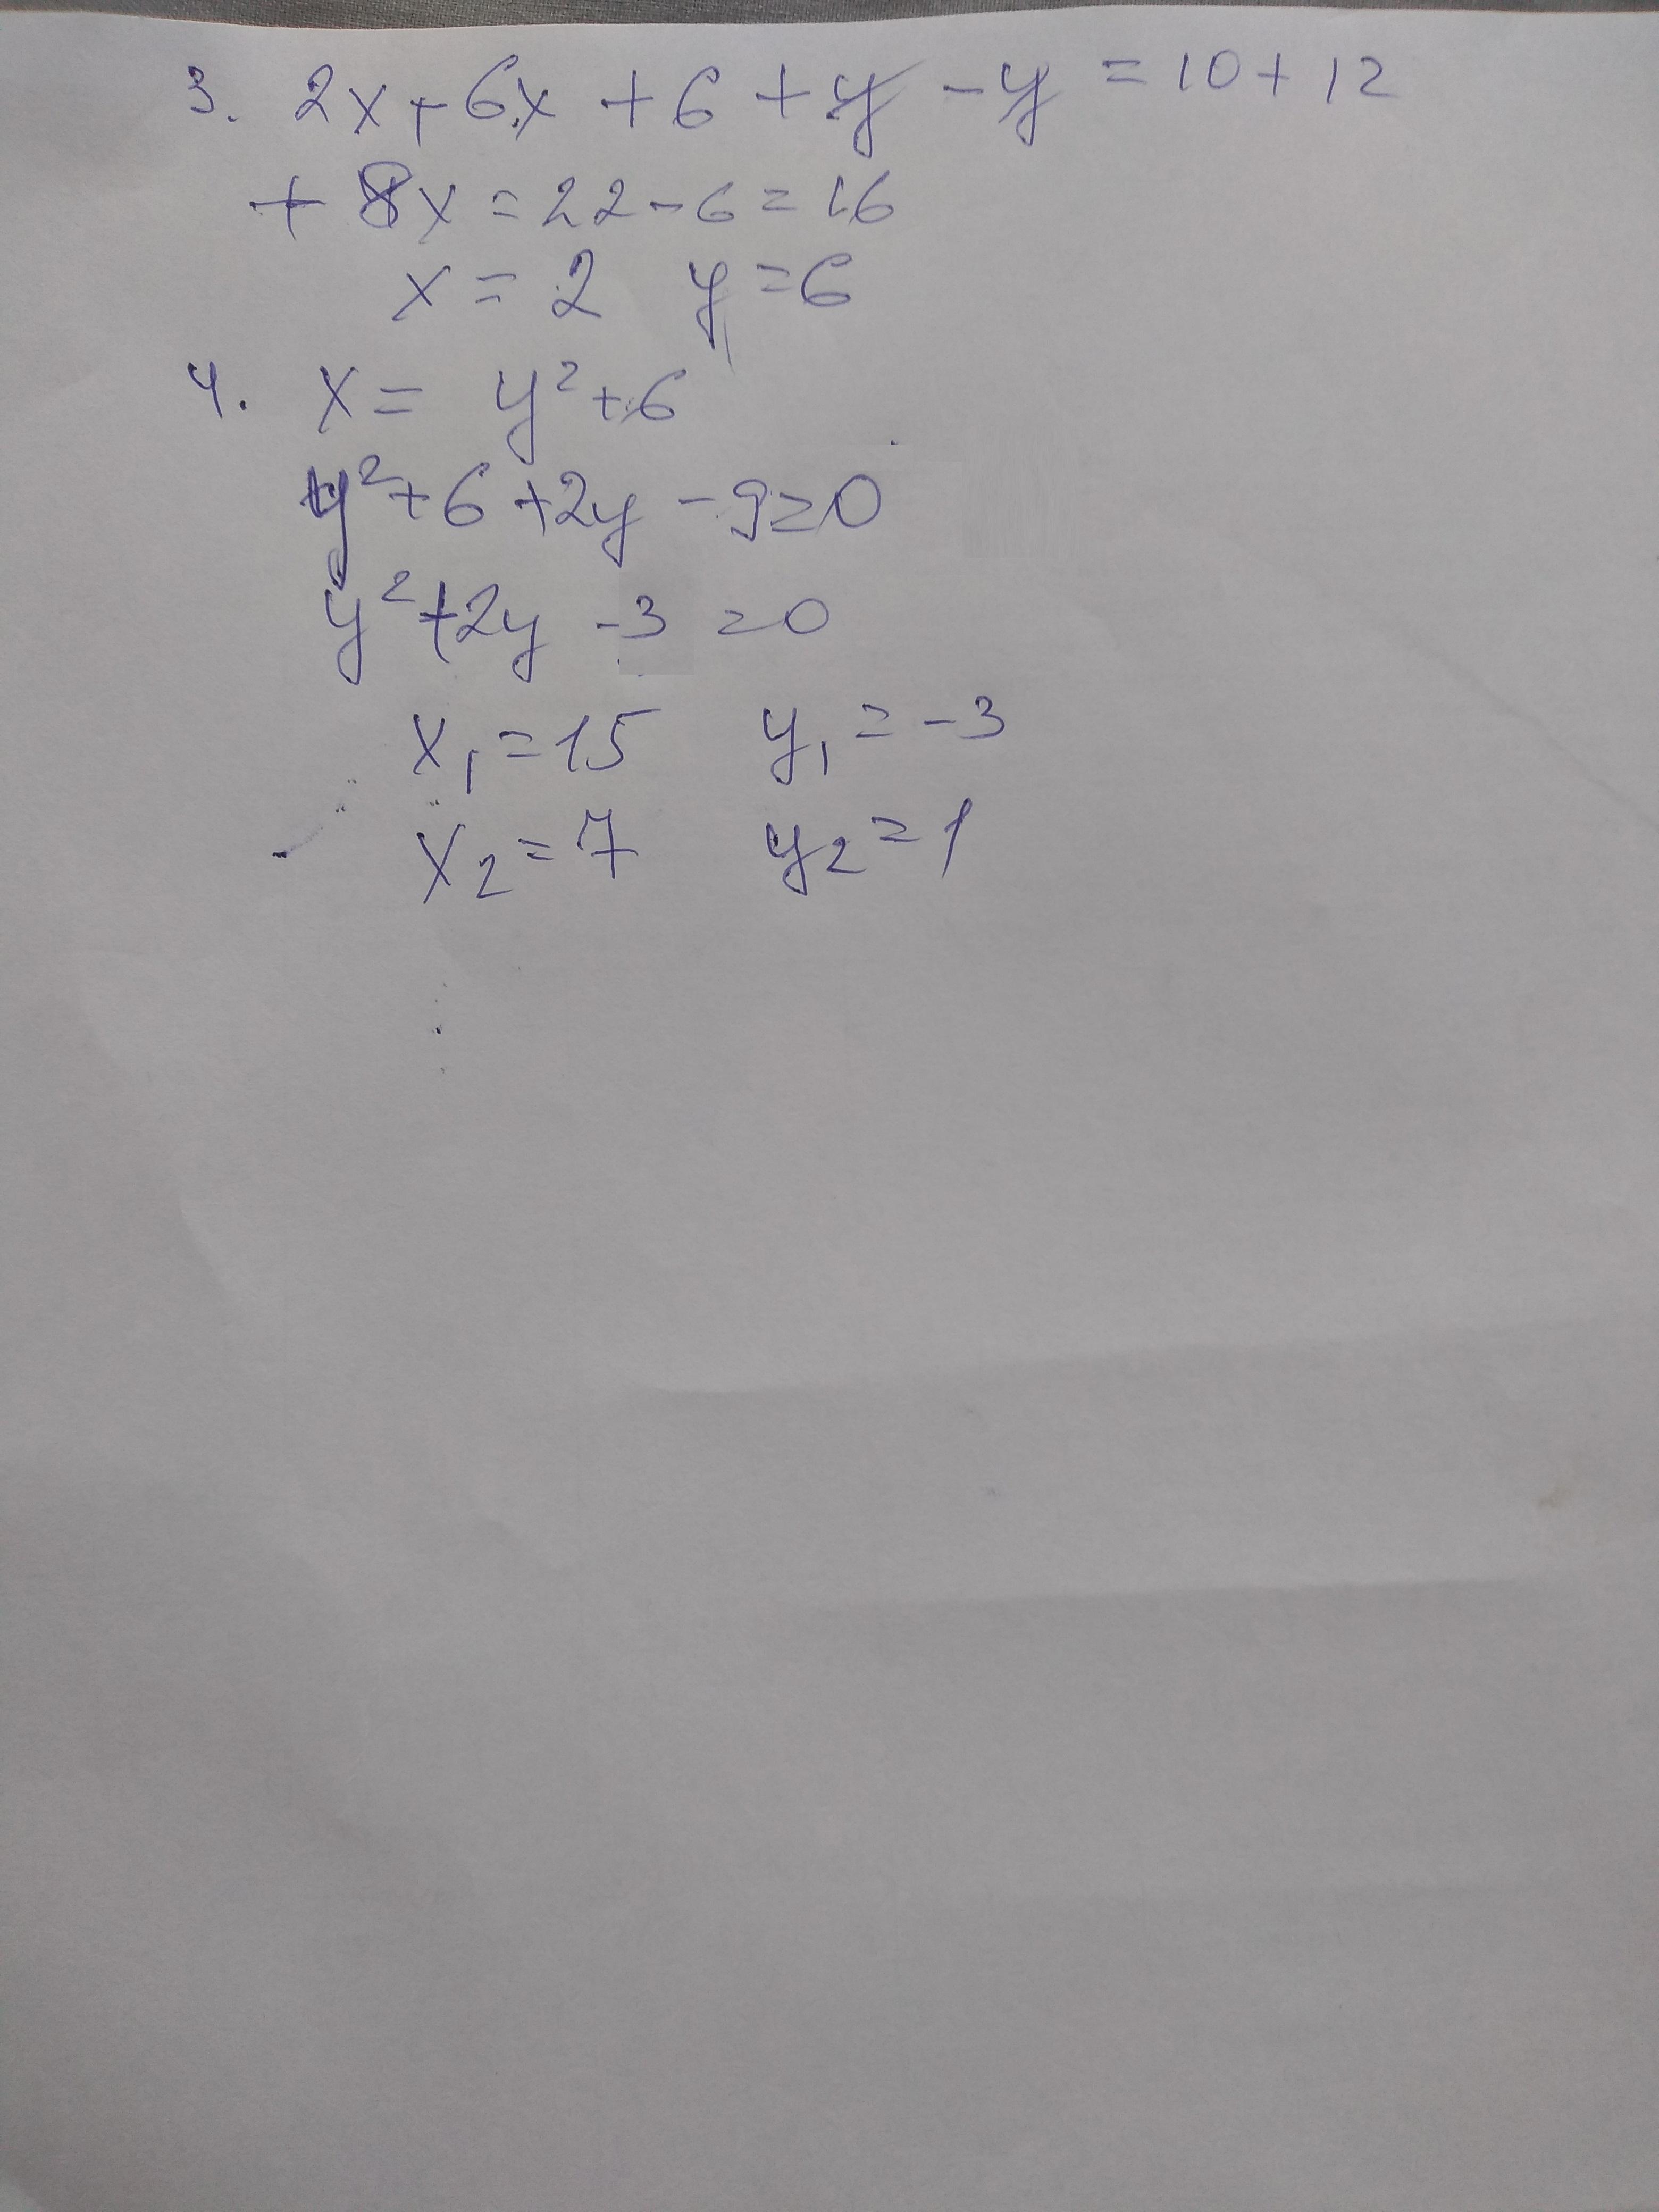 3. 2x + 6x + 6 + y - y = 10 + 12
+ 8x = 22 - 6 = 16
x = 2 y = 6
4. x = y² + 6
y² + 6 + 2y - 9 = 0
y² + 2y - 3 = 0
x₁ = 15 y₁ = -3
x₂ = 7 y₂ = 1